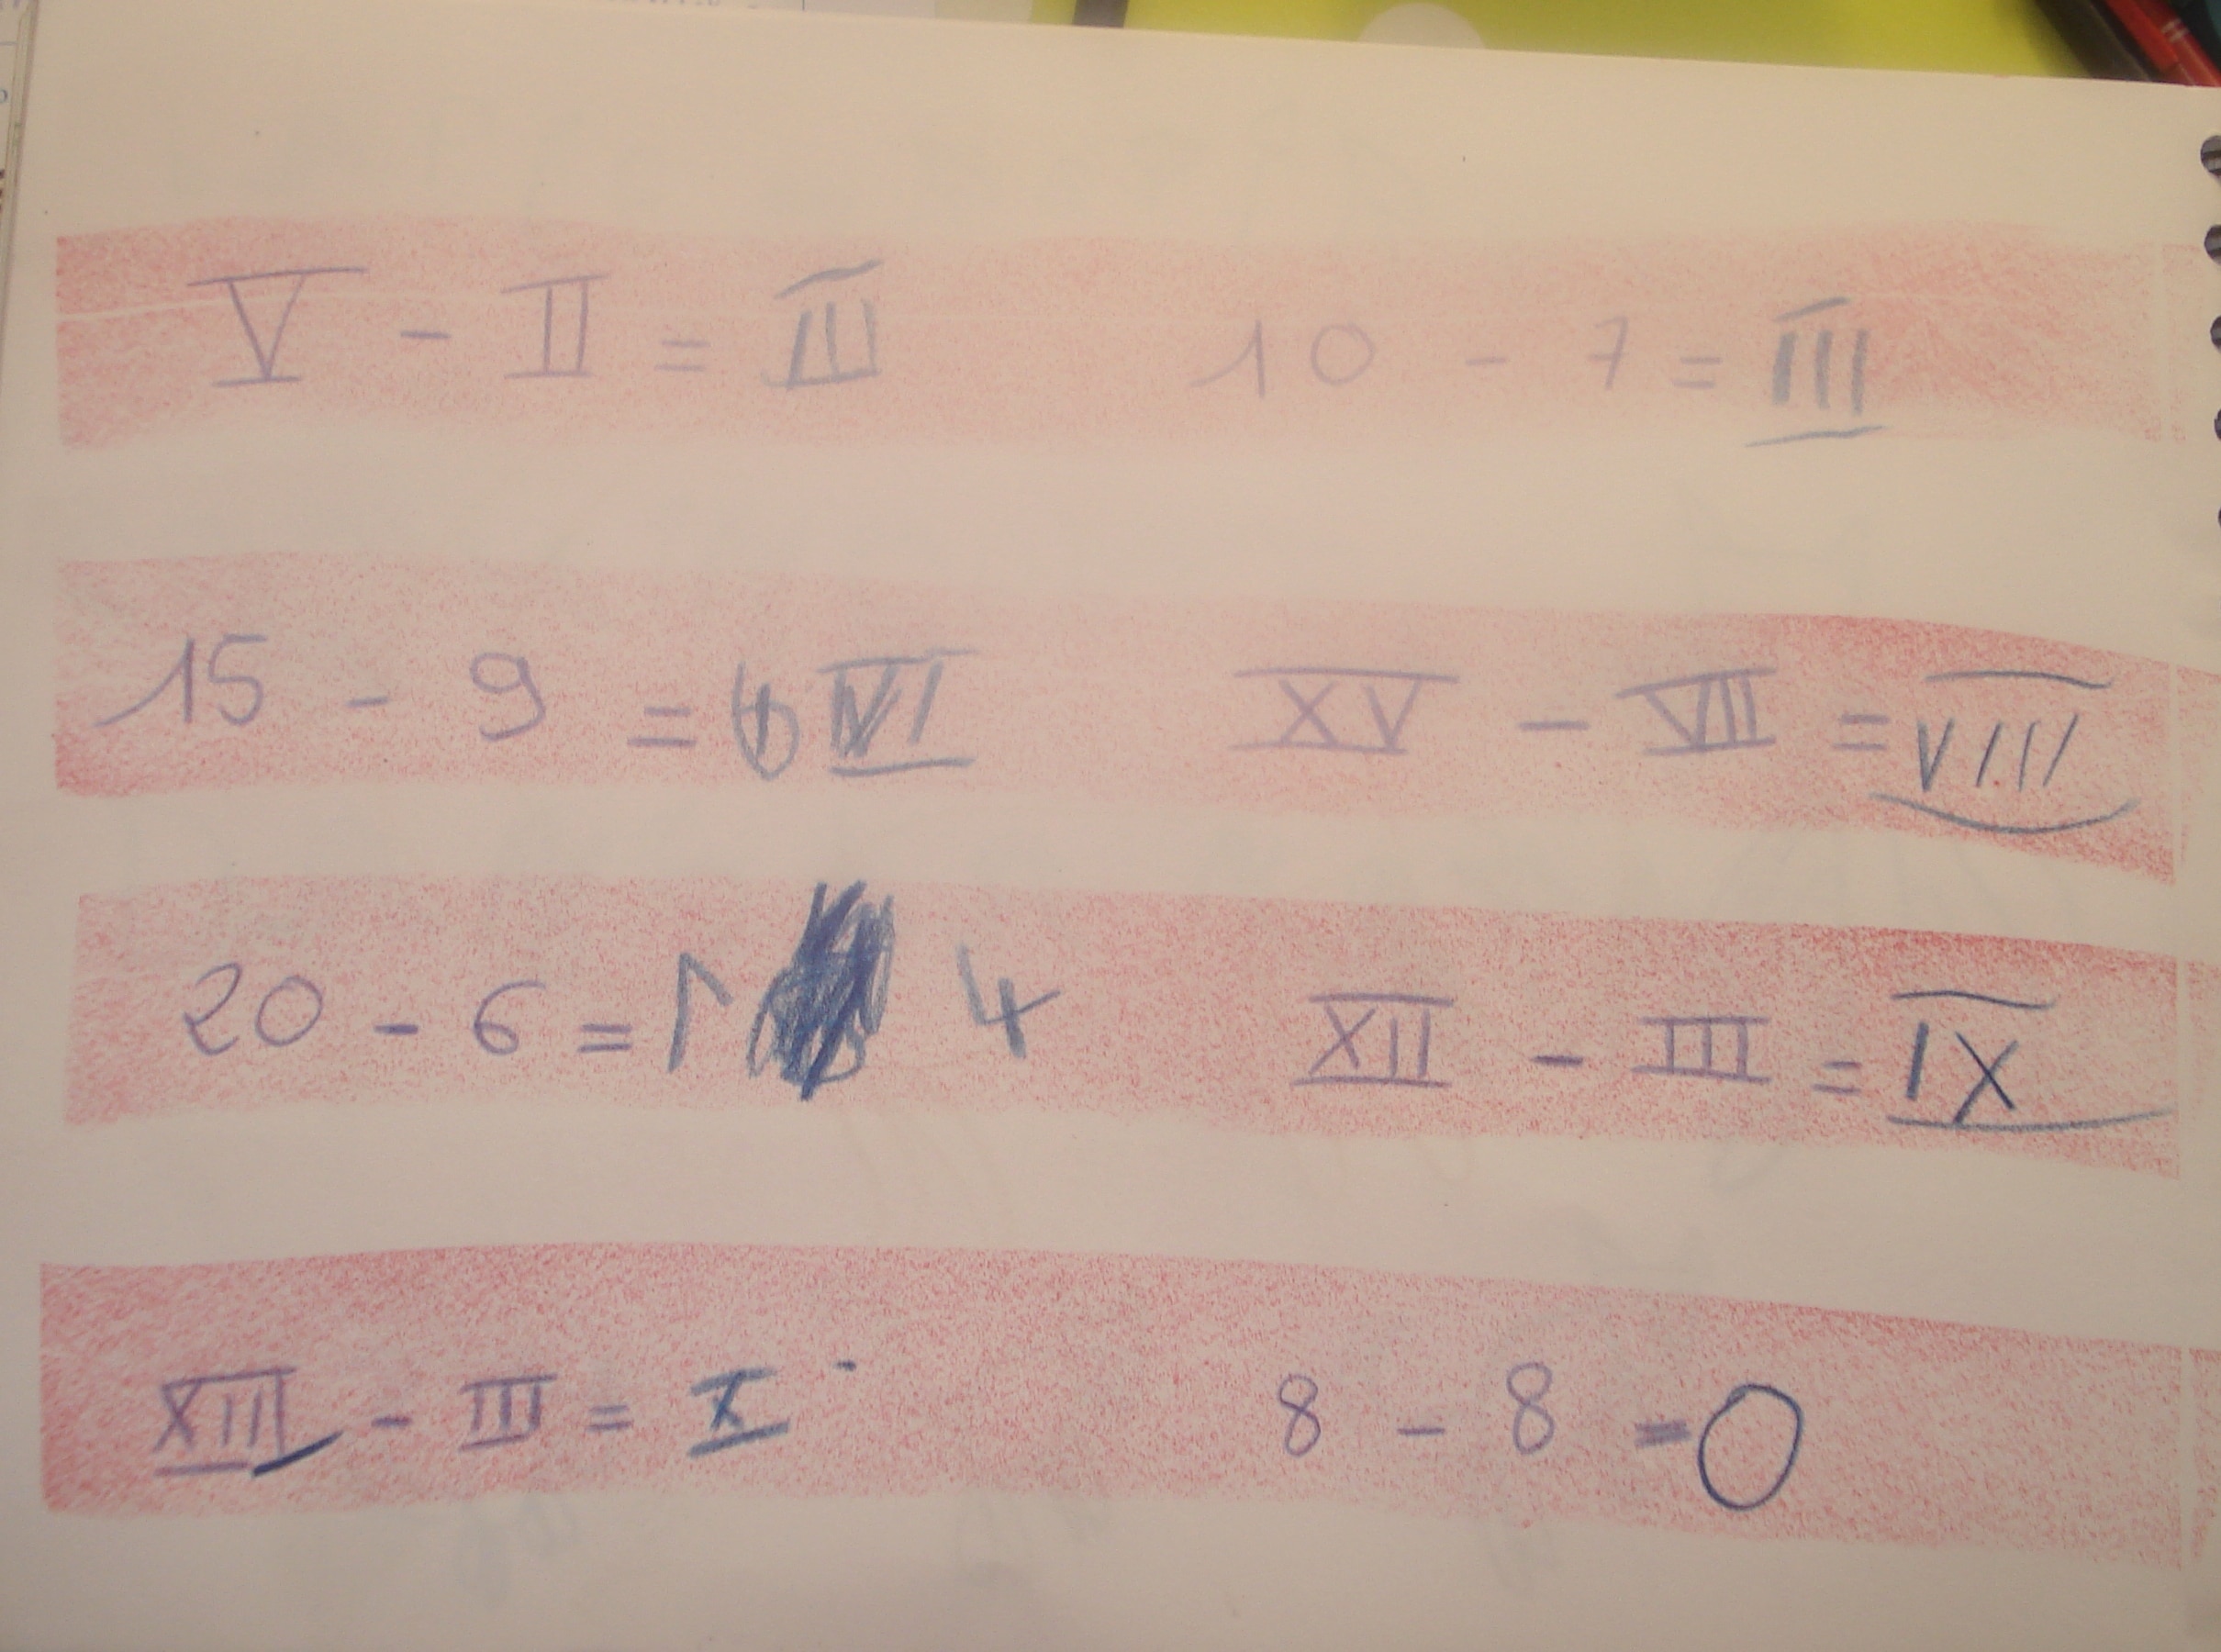 V - II = III 10 - 7 = III
15 - 9 = 6 VI XV - VII = VIII
20 - 6 = 1 4 XII - III = IX
XIII - III = X 8 - 8 = 0